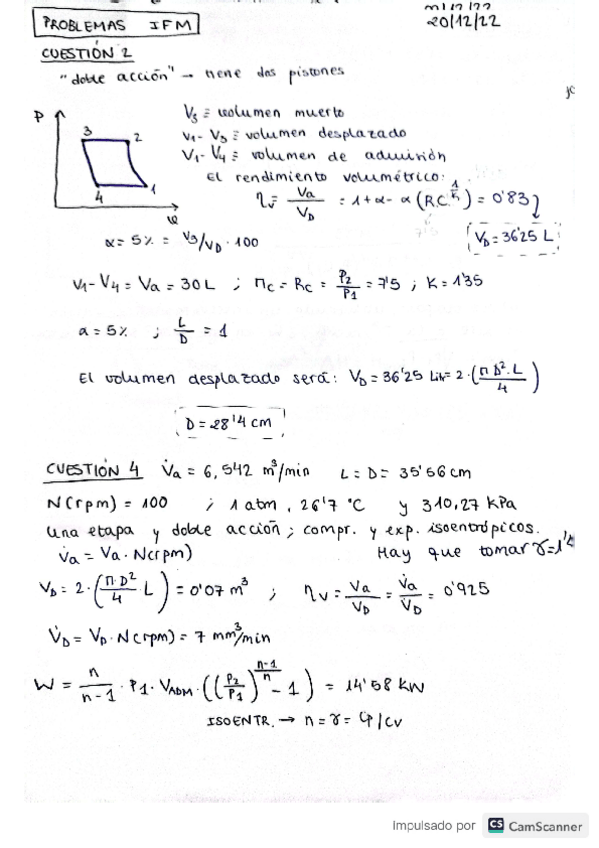 PROBLEMAS IFM
20/12/22
CUESTIÓN 2
"doble acción" → tiene dos pistones
P
3
2
4
1
V3 ≡ volumen muerto
V1-V3 ≡ volumen desplazado
V1-V4 ≡ volumen de admisión
El rendimiento volumétrico:
= Va/VD = 1+α-α(R.C.^1/K) = 0'83
VD = 36'25 L
α = 5% = V3/VD · 100
V1-V4 = Va = 30L ; πc = Rc = P2/P1 = 7'5 ; K = 1'35
a = 5% ; L/D = 1
El volumen desplazado será: VD = 36'25 Lit = 2·(π D².L/4)
D = 28'4 cm
CUESTIÓN 4 V̇a = 6,542 m³/min L = D = 35'56 cm
N(rpm) = 100 ; 1 atm, 26'7 °C y 310,27 KPa
Una etapa y doble acción; compr. y exp. isoentrópicos.
V̇a = Va · N(rpm) Hay que tomar γ=1'4
VD = 2·(π·D²/4 · L) = 0'07 m³ ; ηv = Va/VD = V̇a/V̇D = 0'925
V̇D = VD · N(rpm) = 7 mm³/min
W = n/n-1 · P1 · VADM · ((P2/P1)^n-1/n - 1) = 14'58 KW
ISOENTR. → n = γ = Cp/Cv
Impulsado por CS CamScanner